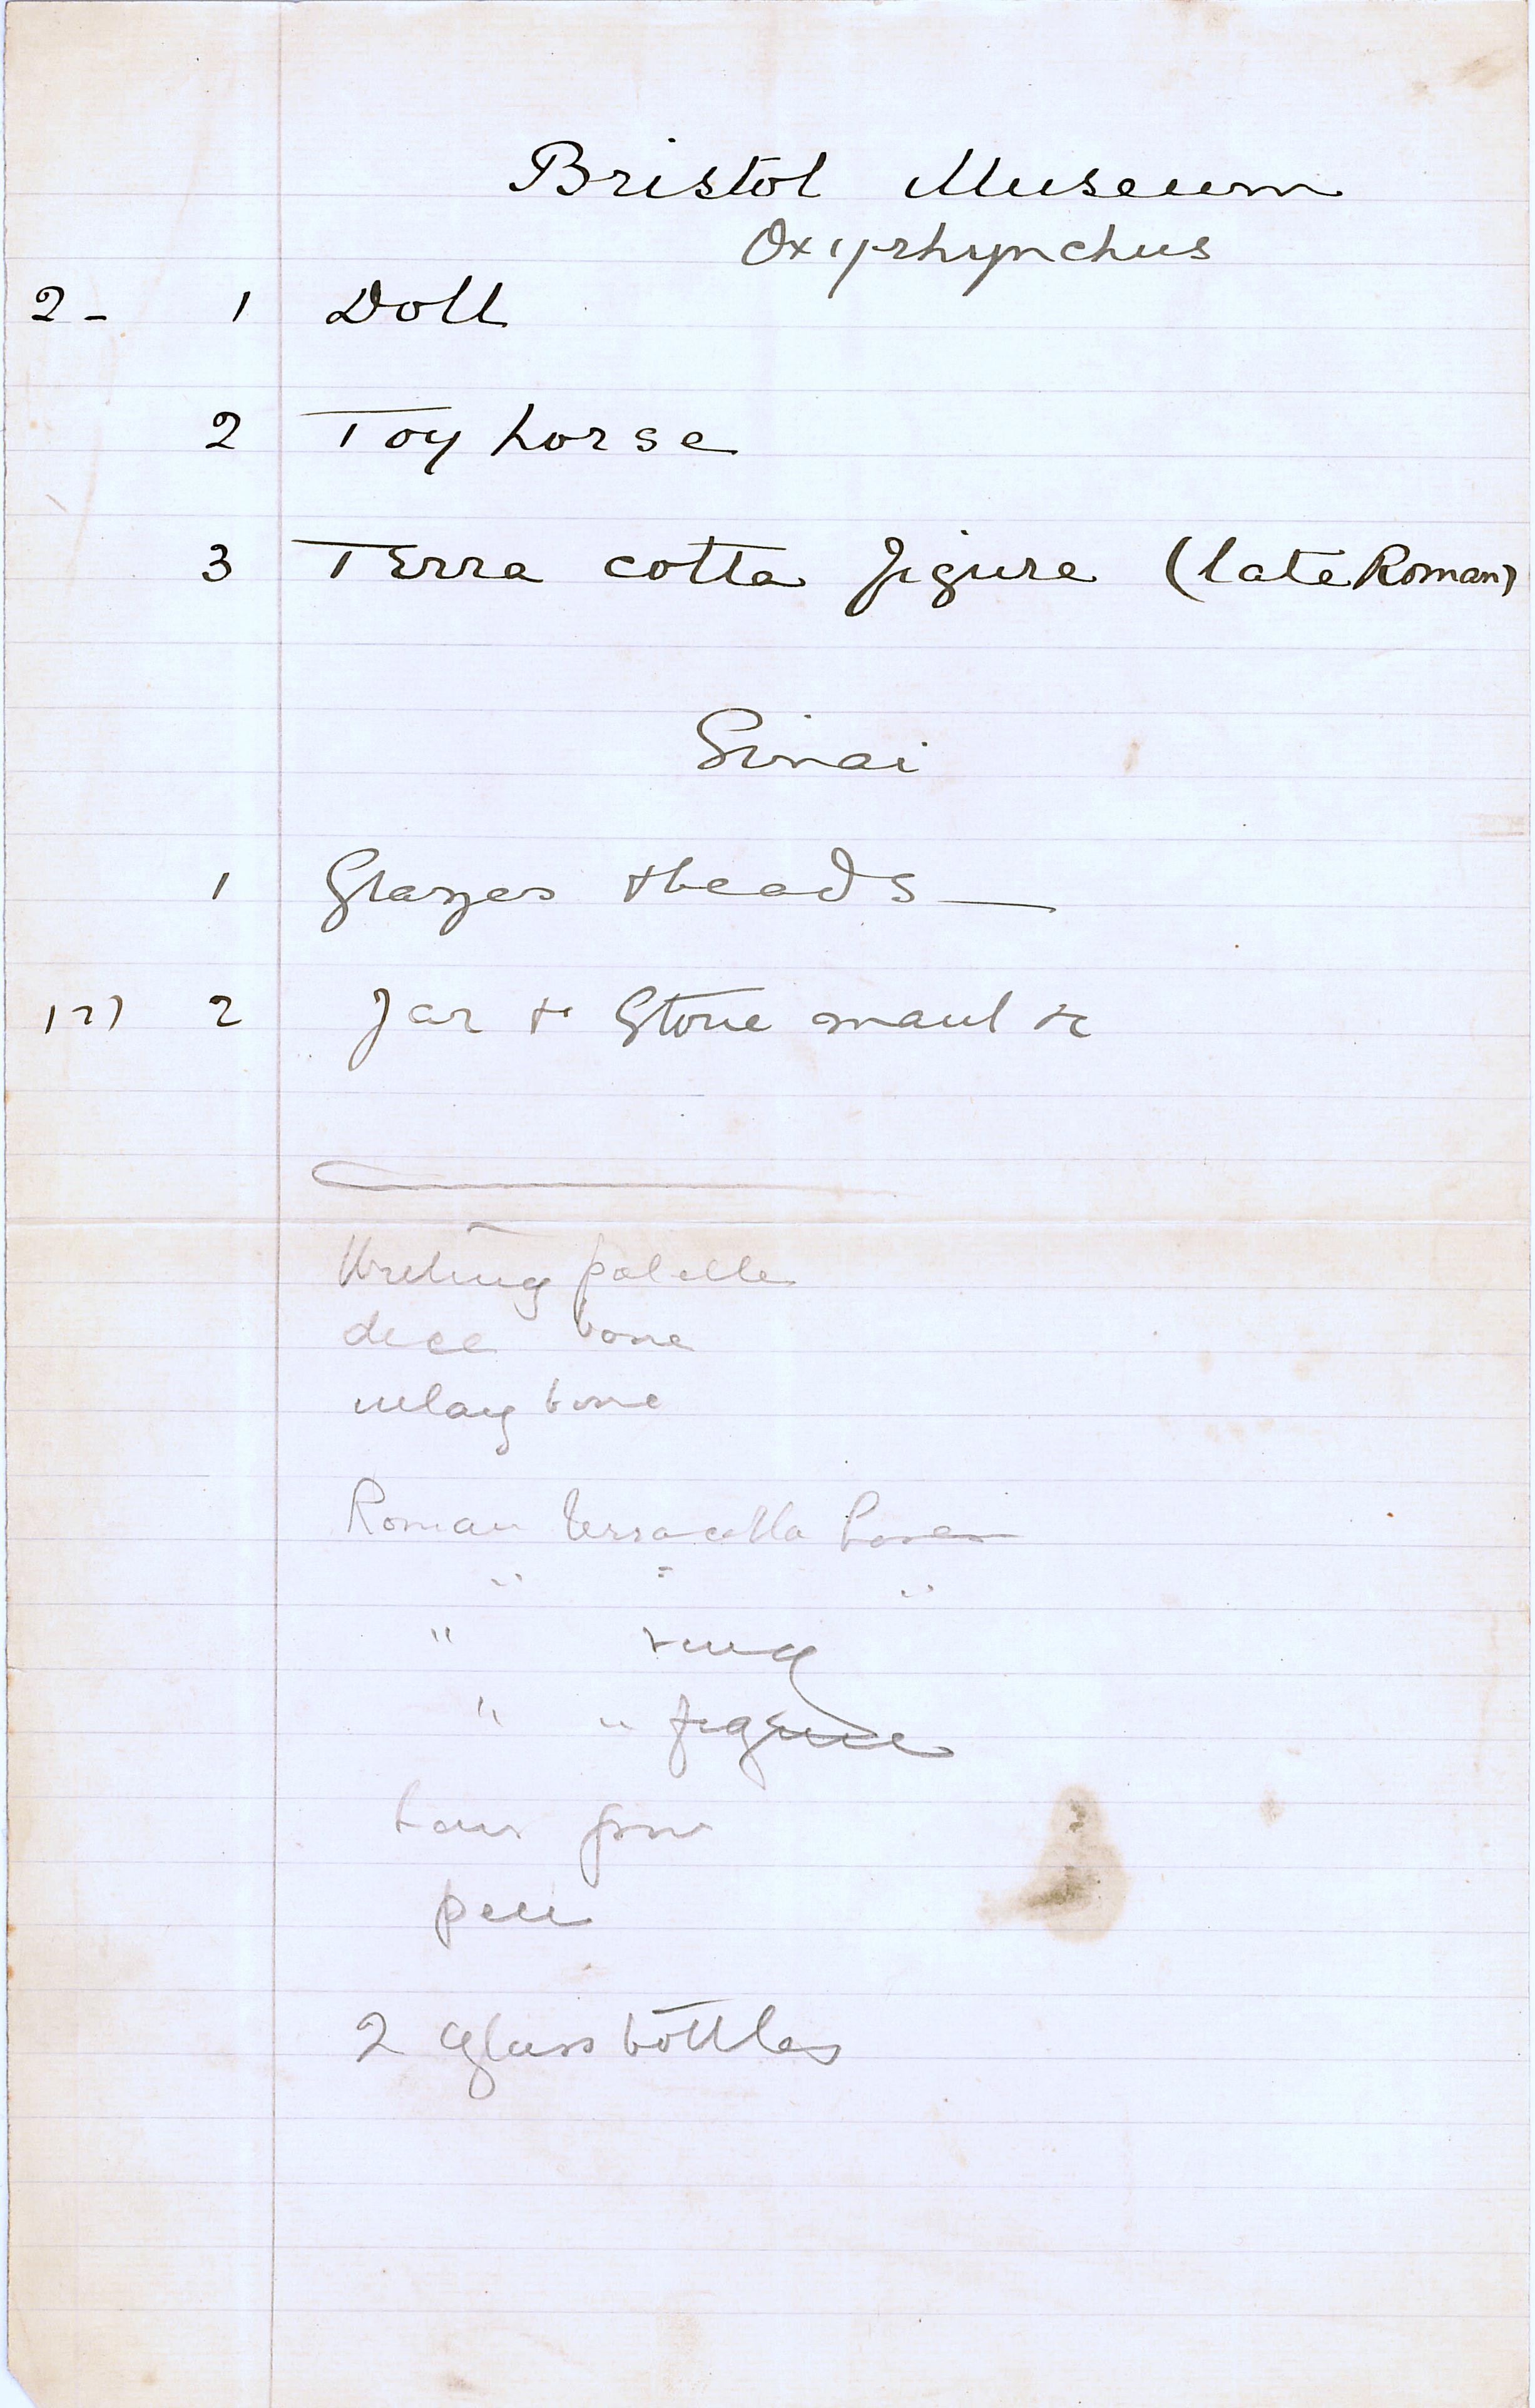 Bristol Museum
Oxyrhynchus
2- 1 Doll
2 Toy horse
3 Terra cotta figure (late Roman)
Sinai
1 Glazes & beads —
2 Jar & Stone maul &c
Writing palette
dice bone
inlay bone
Roman terracotta horse
" " "
" ring
" " figure
hair pin
pen
2 glass bottles